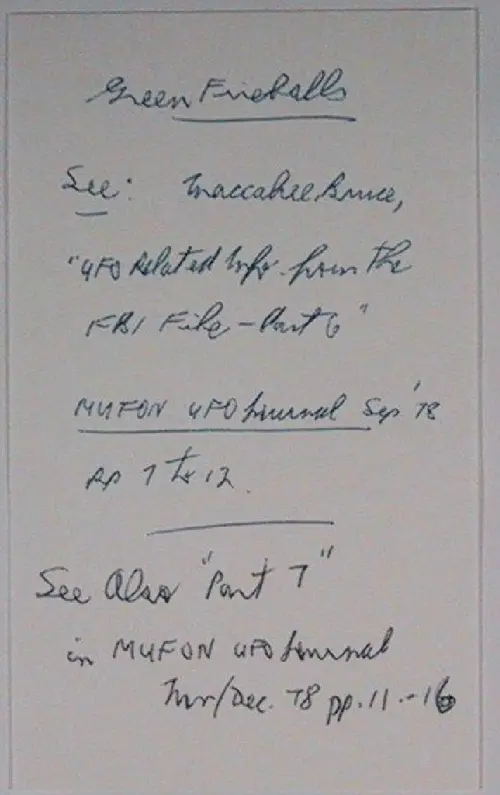 Green Fireballs
See: Maccabee Bruce,
"UFO Related Info. from the
FBI File - Part 6"
MUFON UFO Journal Sep '78
pp 7 to 12.
See Also "Part 7"
in MUFON UFO Journal
Nov/Dec. 78 pp. 11.-16